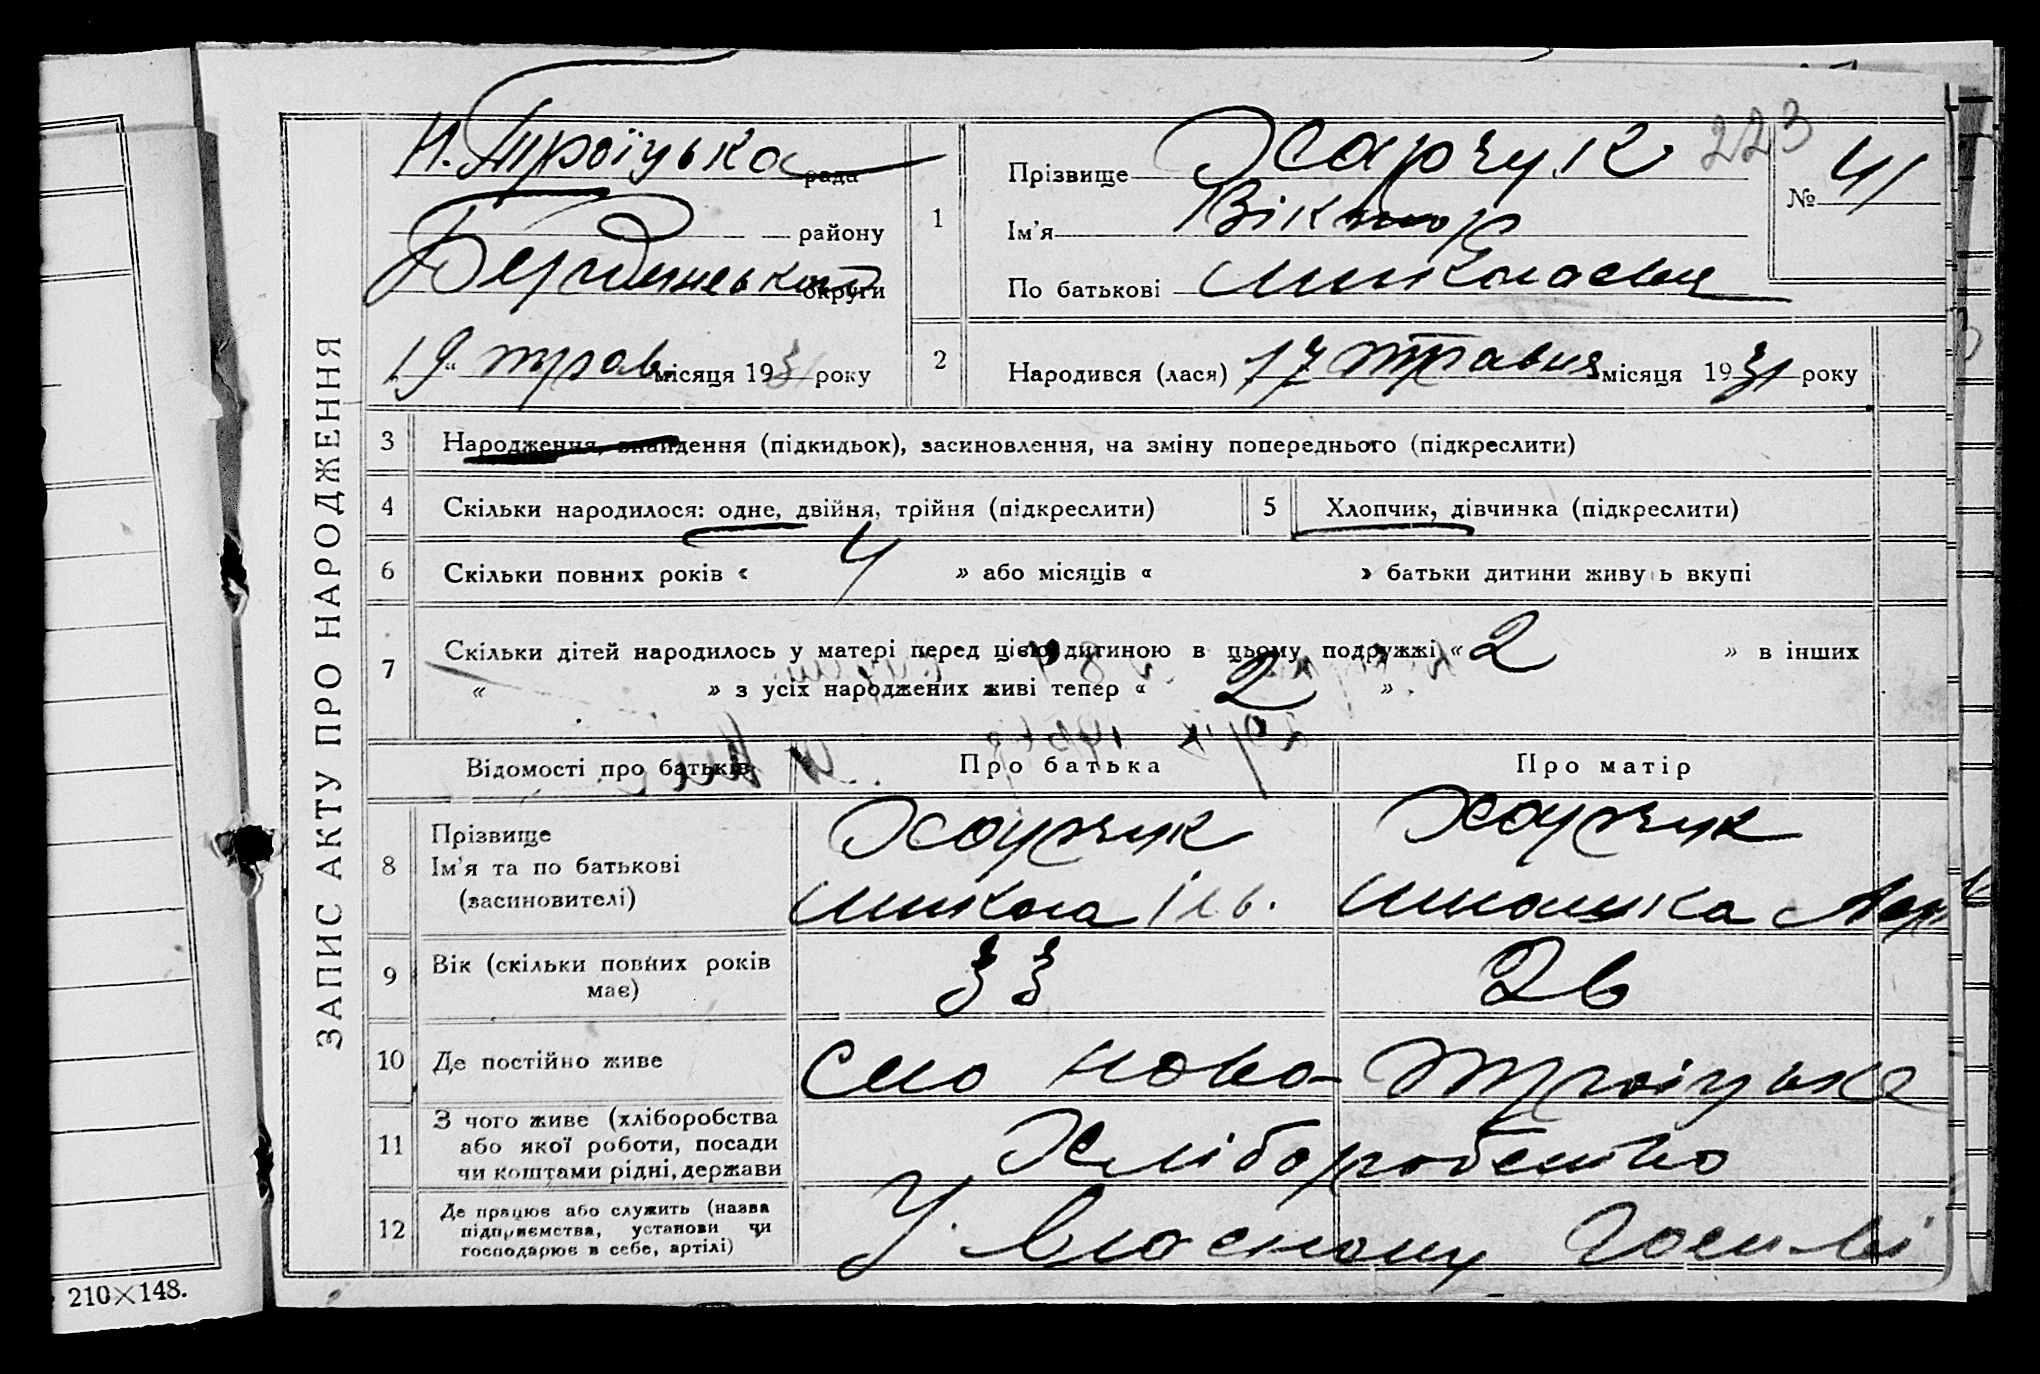 ЗАПИС АКТУ ПРО НАРОДЖЕННЯ
Н. Троїцька рада
району
Бердянського округи
„19“ трав. місяця 1931 року
1
Прізвище Харчук
Ім'я Віктор
По батькові Миколаєвич
223
№ 41
2 Народився (лася) 17 травня місяця 1931 року
3 Народження, знайдення (підкидьок), засиновлення, на зміну попереднього (підкреслити)
4 Скільки народилося: одне, двійня, трійня (підкреслити)
5 Хлопчик, дівчинка (підкреслити)
6 Скільки повних років « 4 » або місяців « » батьки дитини живуть вкупі
7 Скільки дітей народилось у матері перед цією дитиною в цьому подружжі « 2 » в інших
« » з усіх народжених живі тепер « 2 »
Відомості про батьків Про батька Про матір
8 Прізвище
Ім'я та по батькові
(засиновителі)
Харчук
Микола Іль.
Харчук
9 Вік (скільки повних років
має)
33 26
10 Де постійно живе Село Ново-Троіцьке
11 З чого живе (хліборобства
або якої роботи, посади
чи коштами рідні, держави
Хліборобство
12 Де працює або служить (назва
підприємства, установи чи
господарює в себе, артілі)
У власному
210×148.